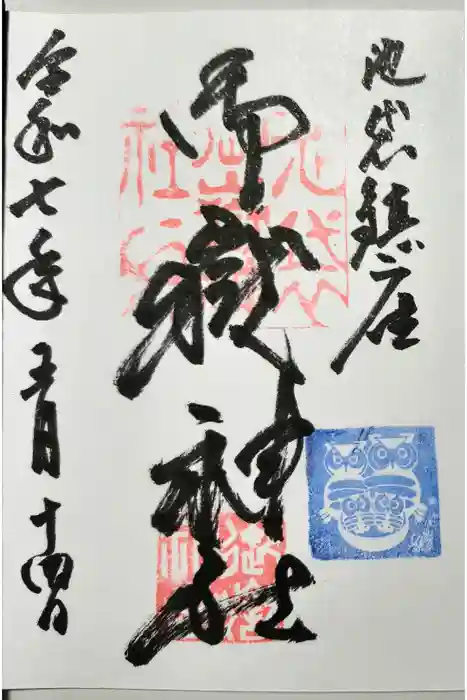 池袋鎮座
御嶽神社
令和七年五月十四日